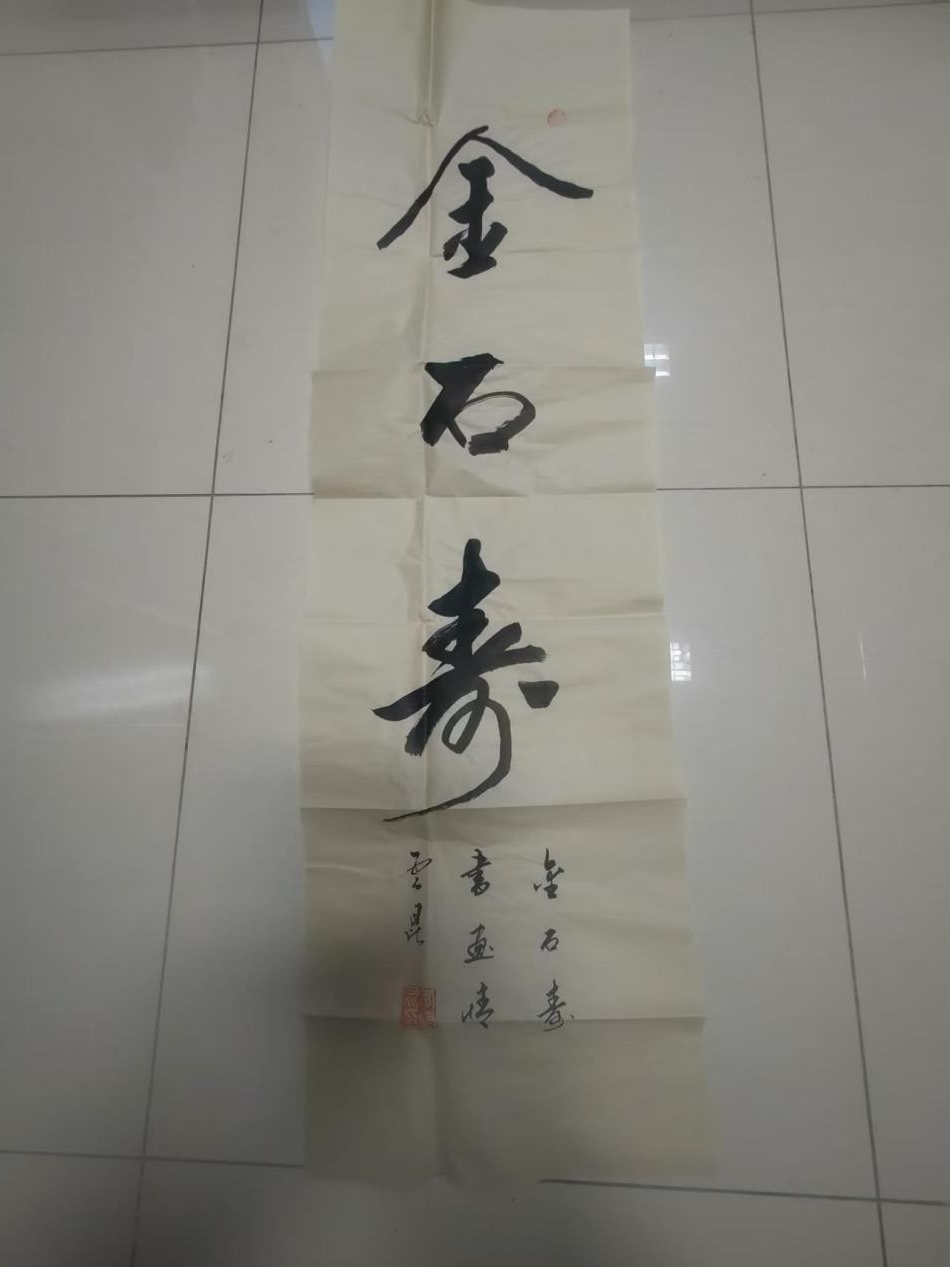 金石寿
金石寿
书画情
云昆